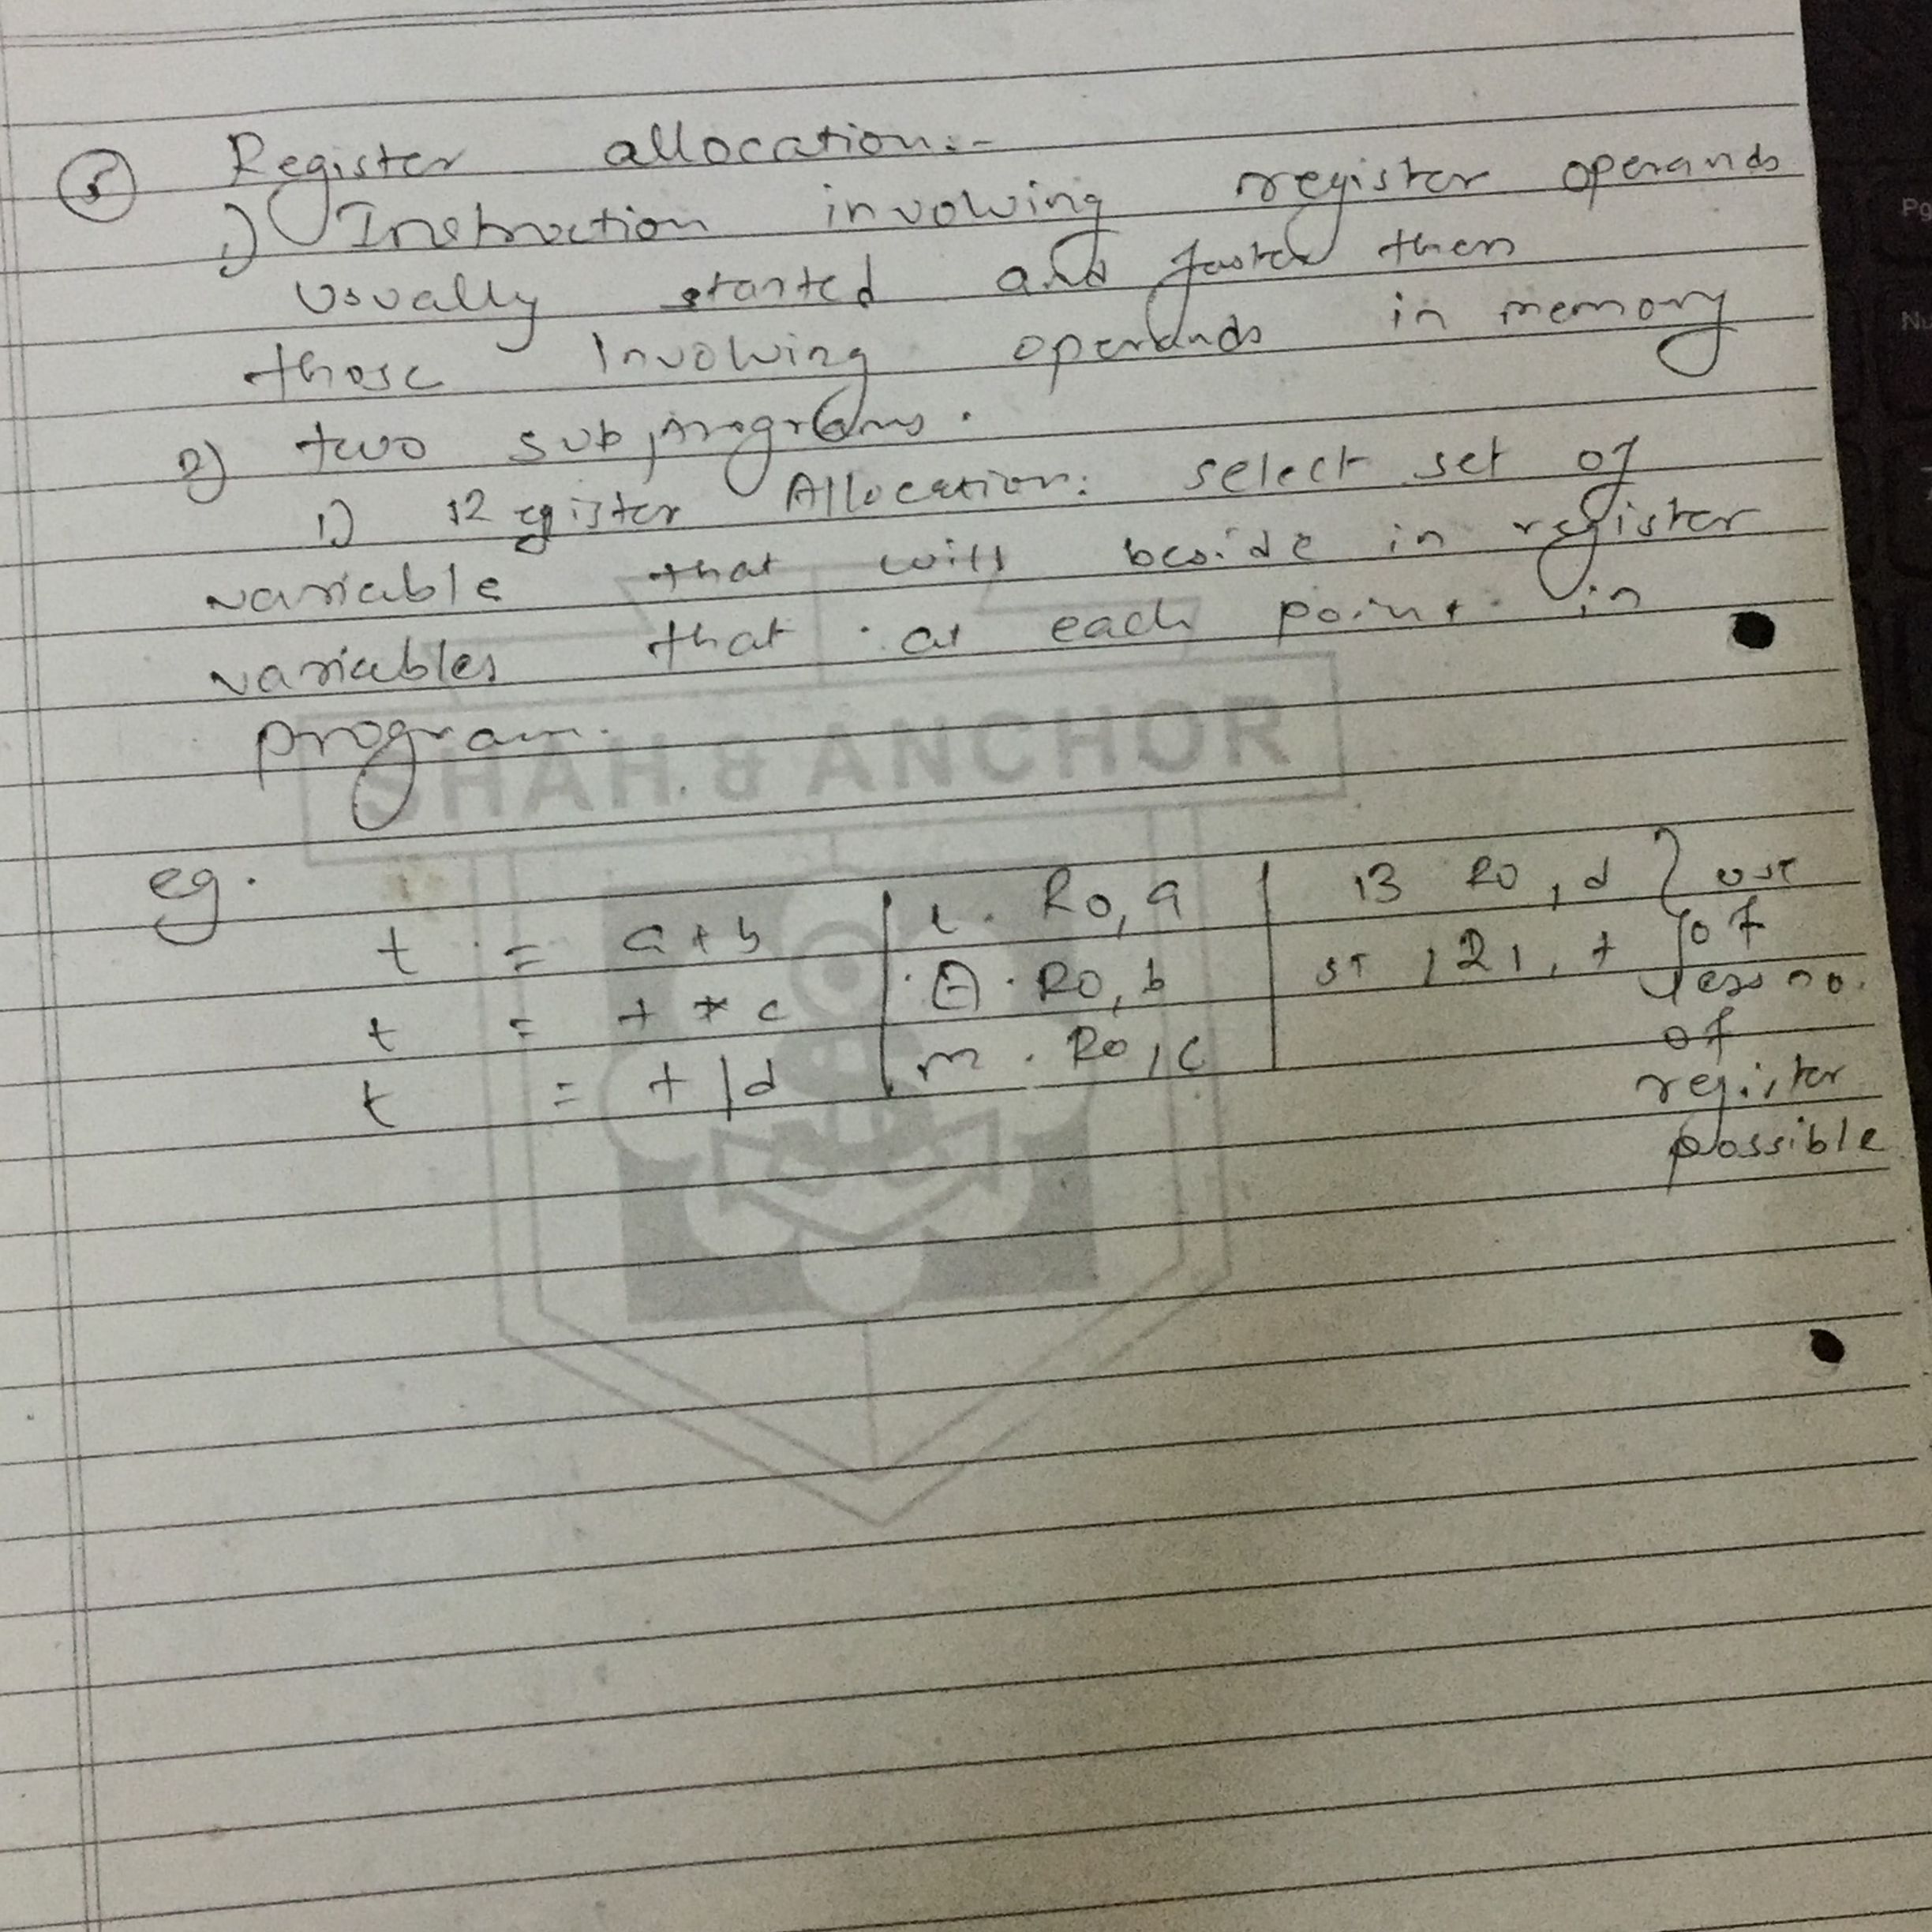 5 Register allocation:-
1) Instruction involving register operands
usually started and faster then
those Involving operands in memory
2) two subprograms.
1) Register Allocation: select set of
variable that will beside in register
variables that at each point in
program.
SHAH & ANCHOR
eg.
t = a+b | L. R0, a | 13 R0, d } use
t = t * c | A. R0, b | ST R1, t of
less no.
t = t / d | m. R0, c of
register
possible